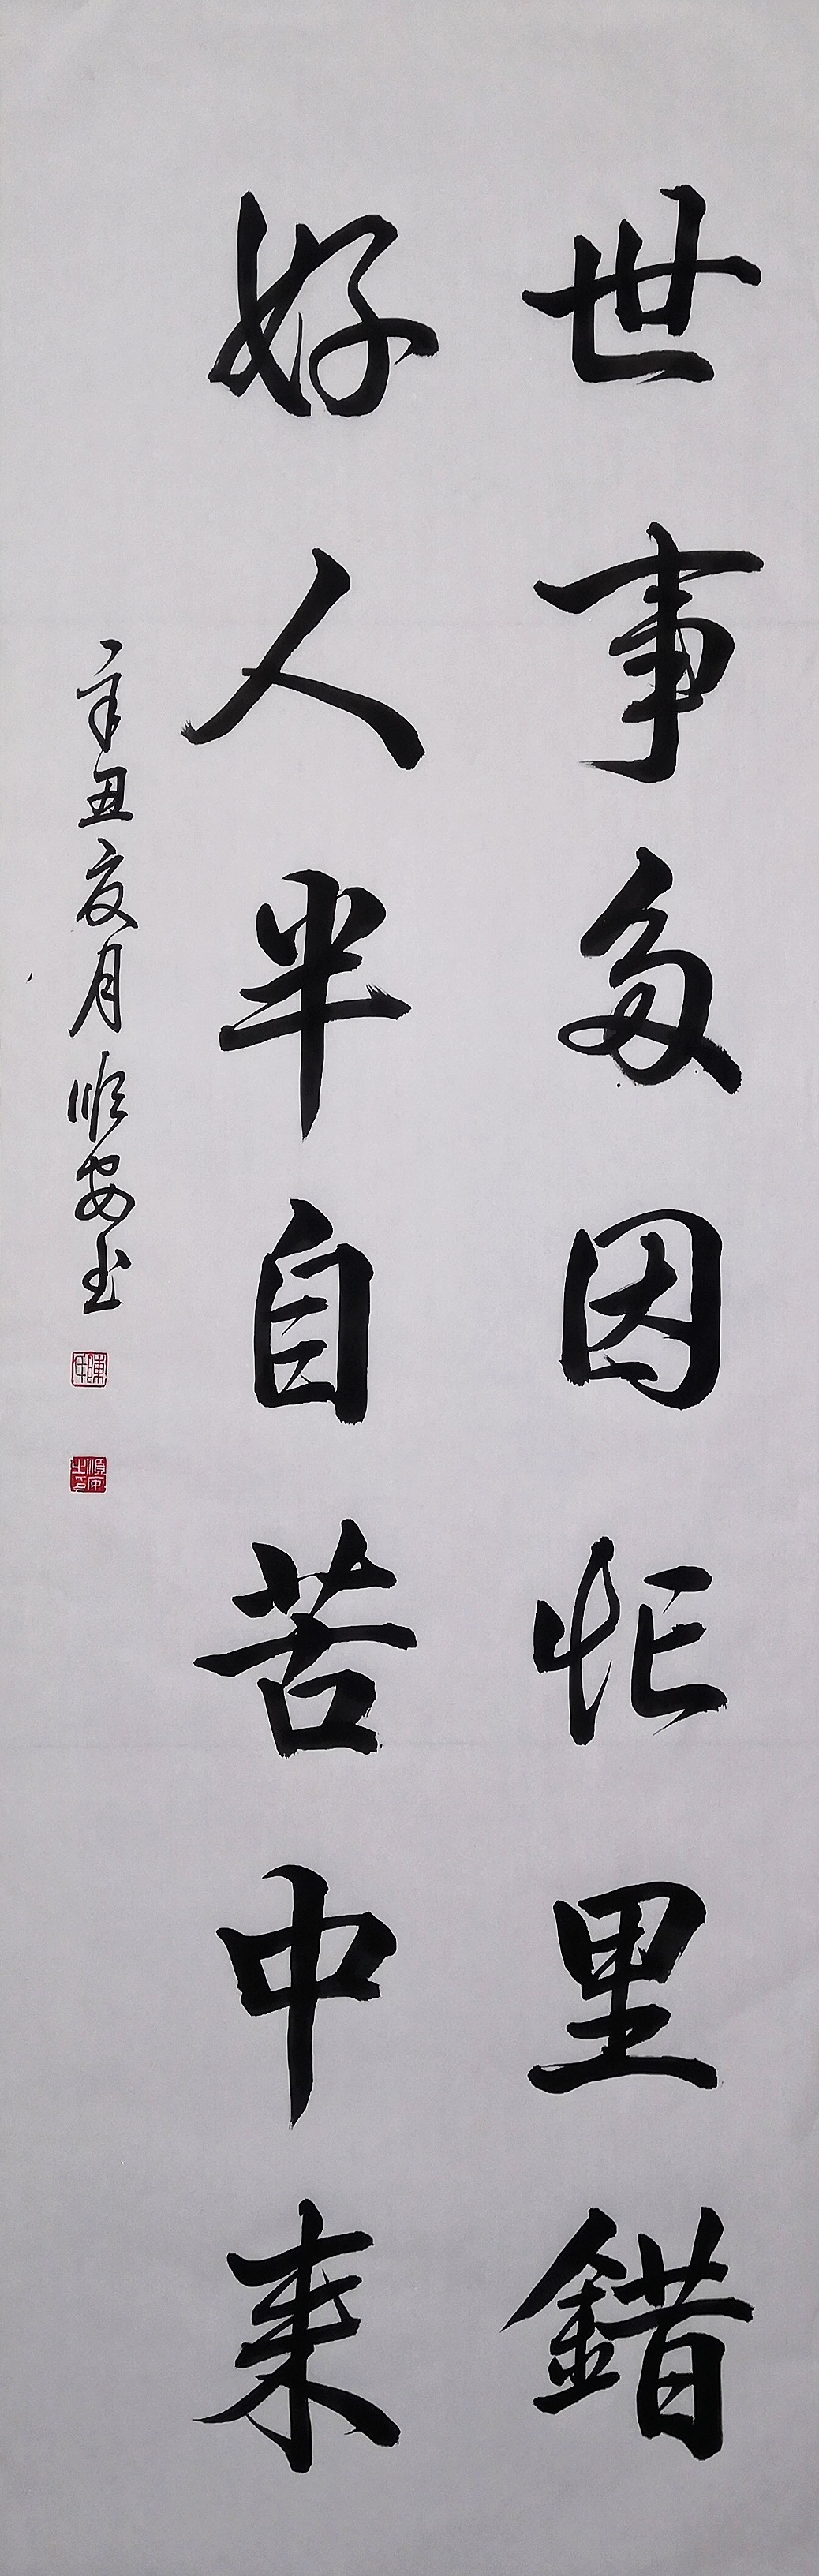 世事多因忙里錯
好人半自苦中来
辛丑夏月順安书
陳年
順安之印